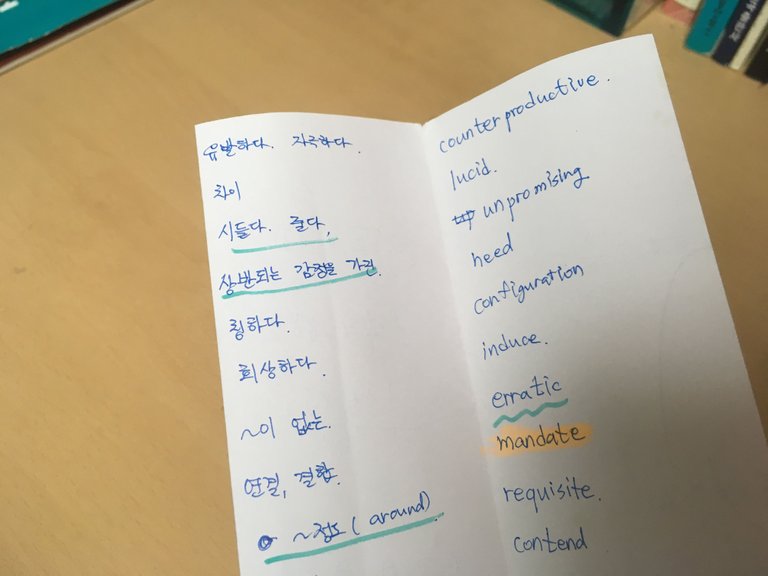 유발하다. 자극하다.
차이
시들다. 줄다,
상반되는 감정을 가진.
칭하다.
회상하다.
~이 없는.
연결, 결합.
~정도 (around)
counterproductive.
lucid.
unpromising
heed
configuration
induce.
erratic
mandate
requisite.
contend